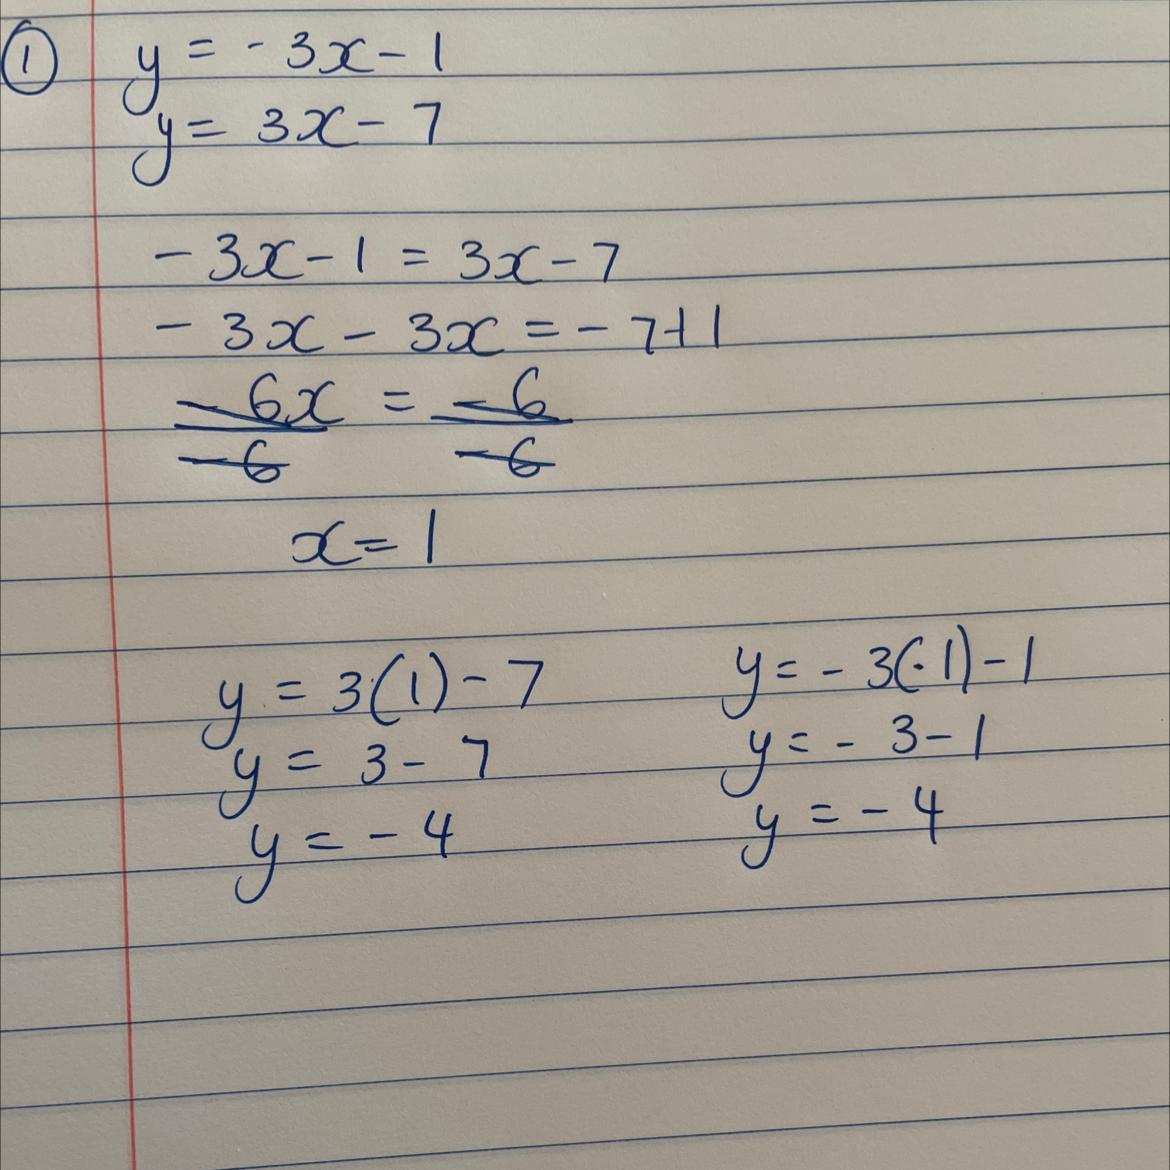 ① y = -3x-1
y = 3x-7
-3x-1 = 3x-7
-3x-3x = -7+1
-6x = -6
-6 -6
x = 1
y = 3(1)-7
y = 3-7
y = -4
y = -3(-1)-1
y = -3-1
y = -4